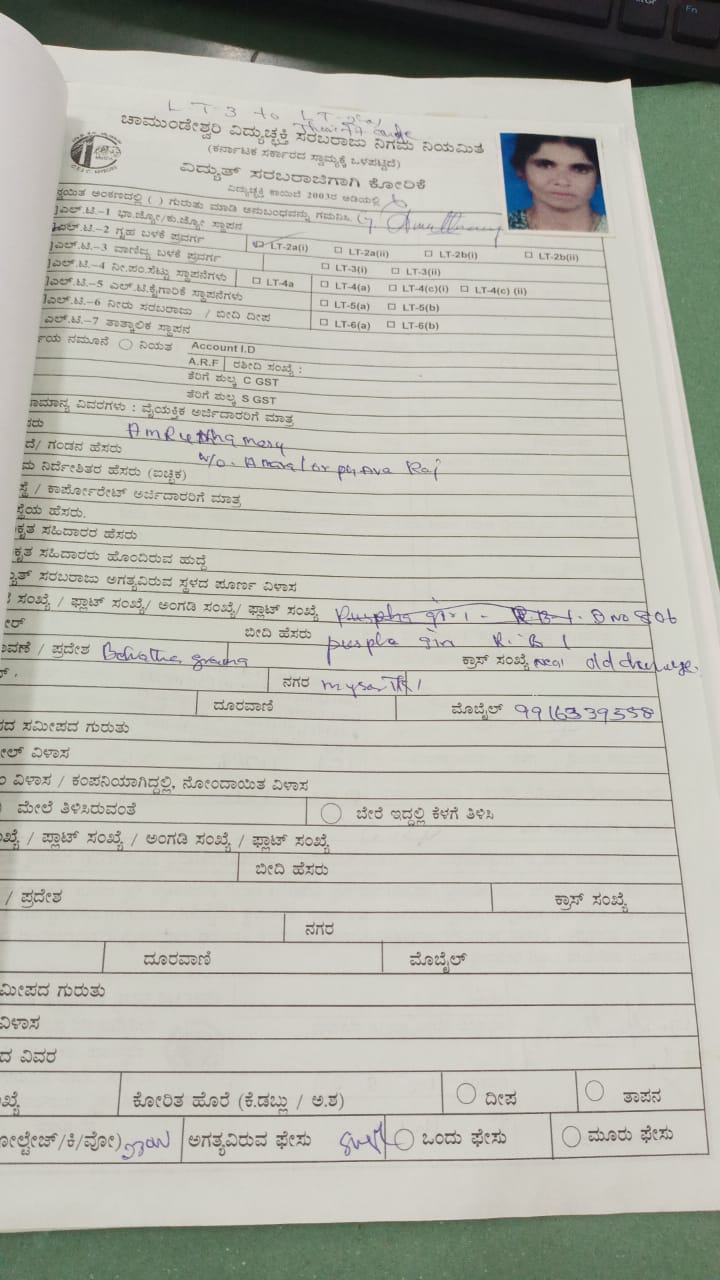 LT-3 to LT-2(a)
Tariff
ಚಾಮುಂಡೇಶ್ವರಿ ವಿದ್ಯುಚ್ಛಕ್ತಿ ಸರಬರಾಜು ನಿಗಮ ನಿಯಮಿತ
(ಕರ್ನಾಟಕ ಸರ್ಕಾರದ ಸ್ವಾಮ್ಯಕ್ಕೆ ಒಳಪಟ್ಟಿದೆ)
ವಿದ್ಯುತ್ ಸರಬರಾಜಿಗಾಗಿ ಕೋರಿಕೆ
ವಿದ್ಯುಚ್ಛಕ್ತಿ ಕಾಯಿದೆ 2003ರ ಅಡಿಯಲ್ಲಿ
ಅಂಕಣದಲ್ಲಿ ( ) ಗುರುತು ಮಾಡಿ ಅನುಬಂಧವನ್ನು ಗಮನಿಸಿ
ಎಲ್.ಟಿ.-1 ಭಾ.ಜ್ಯೋ/ಕು.ಜ್ಯೋ ಸ್ಥಾಪನ
ಎಲ್.ಟಿ.-2 ಗೃಹ ಬಳಕೆ ಪ್ರವರ್ಗ LT-2a(i) LT-2a(ii) LT-2b(i) LT-2b(ii)
ಎಲ್.ಟಿ.-3 ವಾಣಿಜ್ಯ ಬಳಕೆ ಪ್ರವರ್ಗ LT-3(i) LT-3(ii)
ಎಲ್.ಟಿ.-4 ನೀ.ಪಂ.ಸೆಟ್ಟು ಸ್ಥಾಪನೆಗಳು LT-4a LT-4(a) LT-4(c)(i) LT-4(c) (ii)
ಎಲ್.ಟಿ.-5 ಎಲ್.ಟಿ.ಕೈಗಾರಿಕೆ ಸ್ಥಾಪನೆಗಳು LT-5(a) LT-5(b)
ಎಲ್.ಟಿ.-6 ನೀರು ಸರಬರಾಜು / ಬೀದಿ ದೀಪ LT-6(a) LT-6(b)
ಎಲ್.ಟಿ.-7 ತಾತ್ಕಾಲಿಕ ಸ್ಥಾಪನ
ನಮೂನೆ ನಿಯತ Account I.D
A.R.F ರಶೀದಿ ಸಂಖ್ಯೆ :
ತೆರಿಗೆ ಶುಲ್ಕ C GST
ತೆರಿಗೆ ಶುಲ್ಕ S GST
ವಿವರಗಳು : ವೈಯಕ್ತಿಕ ಅರ್ಜಿದಾರರಿಗೆ ಮಾತ್ರ
Amrutha mary
/ ಗಂಡನ ಹೆಸರು W/o. Raj
ನಿರ್ದೇಶಿತರ ಹೆಸರು (ಐಚ್ಛಿಕ)
/ ಕಾರ್ಪೋರೇಟ್ ಅರ್ಜಿದಾರರಿಗೆ ಮಾತ್ರ
ಹೆಸರು.
ಸಹಿದಾರರ ಹೆಸರು
ಸಹಿದಾರರು ಹೊಂದಿರುವ ಹುದ್ದೆ
ಸರಬರಾಜು ಅಗತ್ಯವಿರುವ ಸ್ಥಳದ ಪೂರ್ಣ ವಿಳಾಸ
ಸಂಖ್ಯೆ / ಫ್ಲಾಟ್ ಸಂಖ್ಯೆ/ ಅಂಗಡಿ ಸಂಖ್ಯೆ/ ಫ್ಲಾಟ್ ಸಂಖ್ಯೆ giri - D no 806
ಬೀದಿ ಹೆಸರು
/ ಪ್ರದೇಶ ಕ್ರಾಸ್ ಸಂಖ್ಯೆ near old
ನಗರ
ದೂರವಾಣಿ ಮೊಬೈಲ್ 9916339558
ಸಮೀಪದ ಗುರುತು
ವಿಳಾಸ
ವಿಳಾಸ / ಕಂಪನಿಯಾಗಿದ್ದಲ್ಲಿ, ನೋಂದಾಯಿತ ವಿಳಾಸ
ಮೇಲೆ ತಿಳಿಸಿರುವಂತೆ ಬೇರೆ ಇದ್ದಲ್ಲಿ ಕೆಳಗೆ ತಿಳಿಸಿ
/ ಪ್ಲಾಟ್ ಸಂಖ್ಯೆ / ಅಂಗಡಿ ಸಂಖ್ಯೆ / ಫ್ಲಾಟ್ ಸಂಖ್ಯೆ
ಬೀದಿ ಹೆಸರು
/ ಪ್ರದೇಶ ಕ್ರಾಸ್ ಸಂಖ್ಯೆ
ನಗರ
ದೂರವಾಣಿ ಮೊಬೈಲ್
ಗುರುತು
ವಿಳಾಸ
ವಿವರ
ಕೋರಿತ ಹೊರೆ (ಕೆ.ಡಬ್ಲು / ಅ.ಶ) ದೀಪ ತಾಪನ
ಅಗತ್ಯವಿರುವ ಫೇಸು ಒಂದು ಫೇಸು ಮೂರು ಫೇಸು